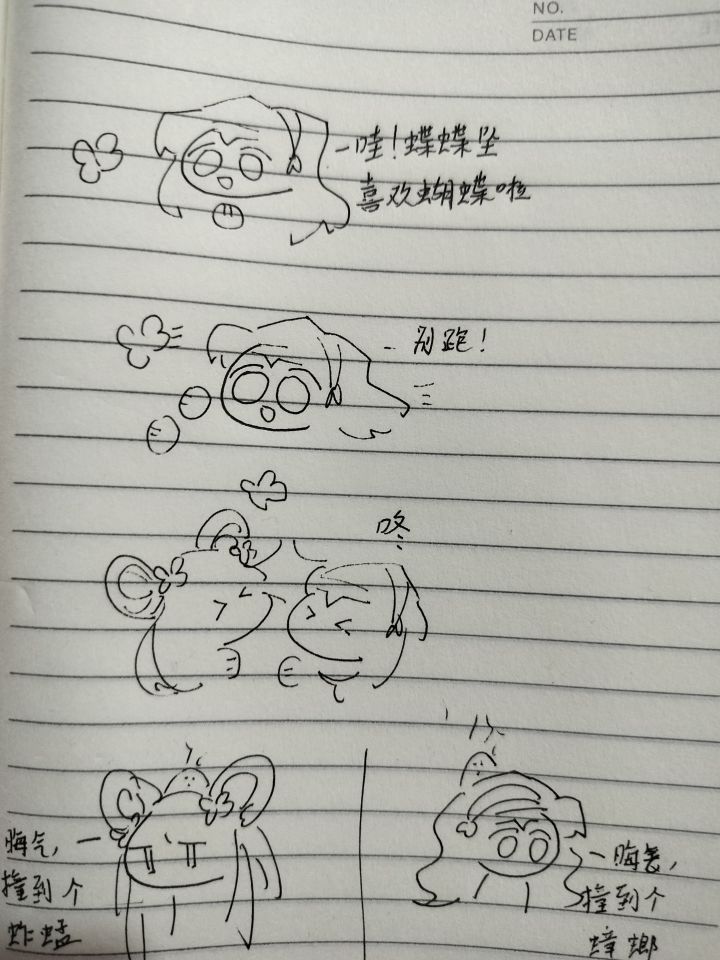 NO.
DATE
哇!蝶蝶坠
喜欢蝴蝶啦
别跑!
咚
晦气,
撞到个
蚱蜢
晦气,
撞到个
蟑螂